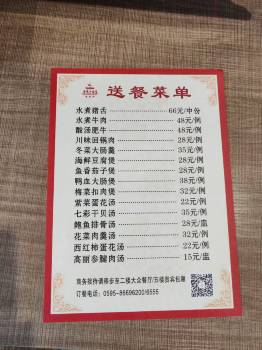 送餐菜单
水煮猪舌 66元/中份
水煮牛肉 48元/例
酸汤肥牛 48元/例
川味回锅肉 28元/例
冬菜大肠羹 35元/例
海鲜豆腐煲 28元/例
鱼香茄子煲 28元/例
鸭血大肠煲 38元/例
梅菜扣肉煲 32元/例
紫菜蛋花汤 22元/例
七彩干贝汤 35元/例
鲍鱼排骨汤 28元/盅
花菜肉羹汤 32元/例
西红柿蛋花汤 22元/例
高丽参腱肉汤 15元/盅
商务接待请移步至二楼大众餐厅/五楼贵宾包厢
订餐电话：0595-86696200/6555